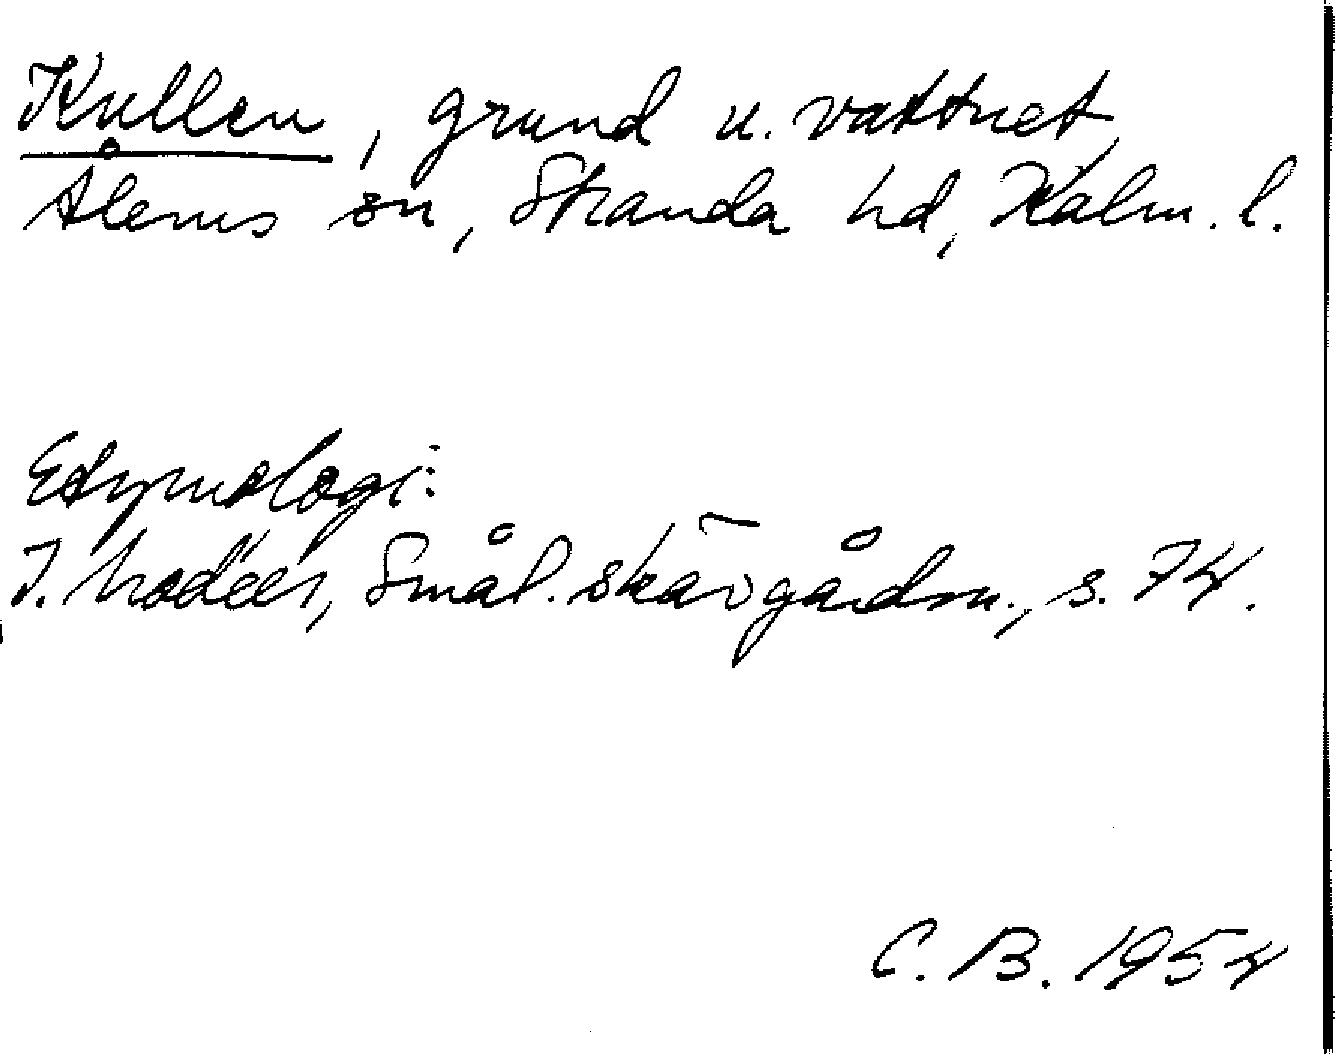 Kullen, grund u. vattnet
Ålems sn, Stranda hd, Kalm. l.
Etymologi:
I. Modéer, Smål. skärgårdsn., s. 74.
C. B. 1954